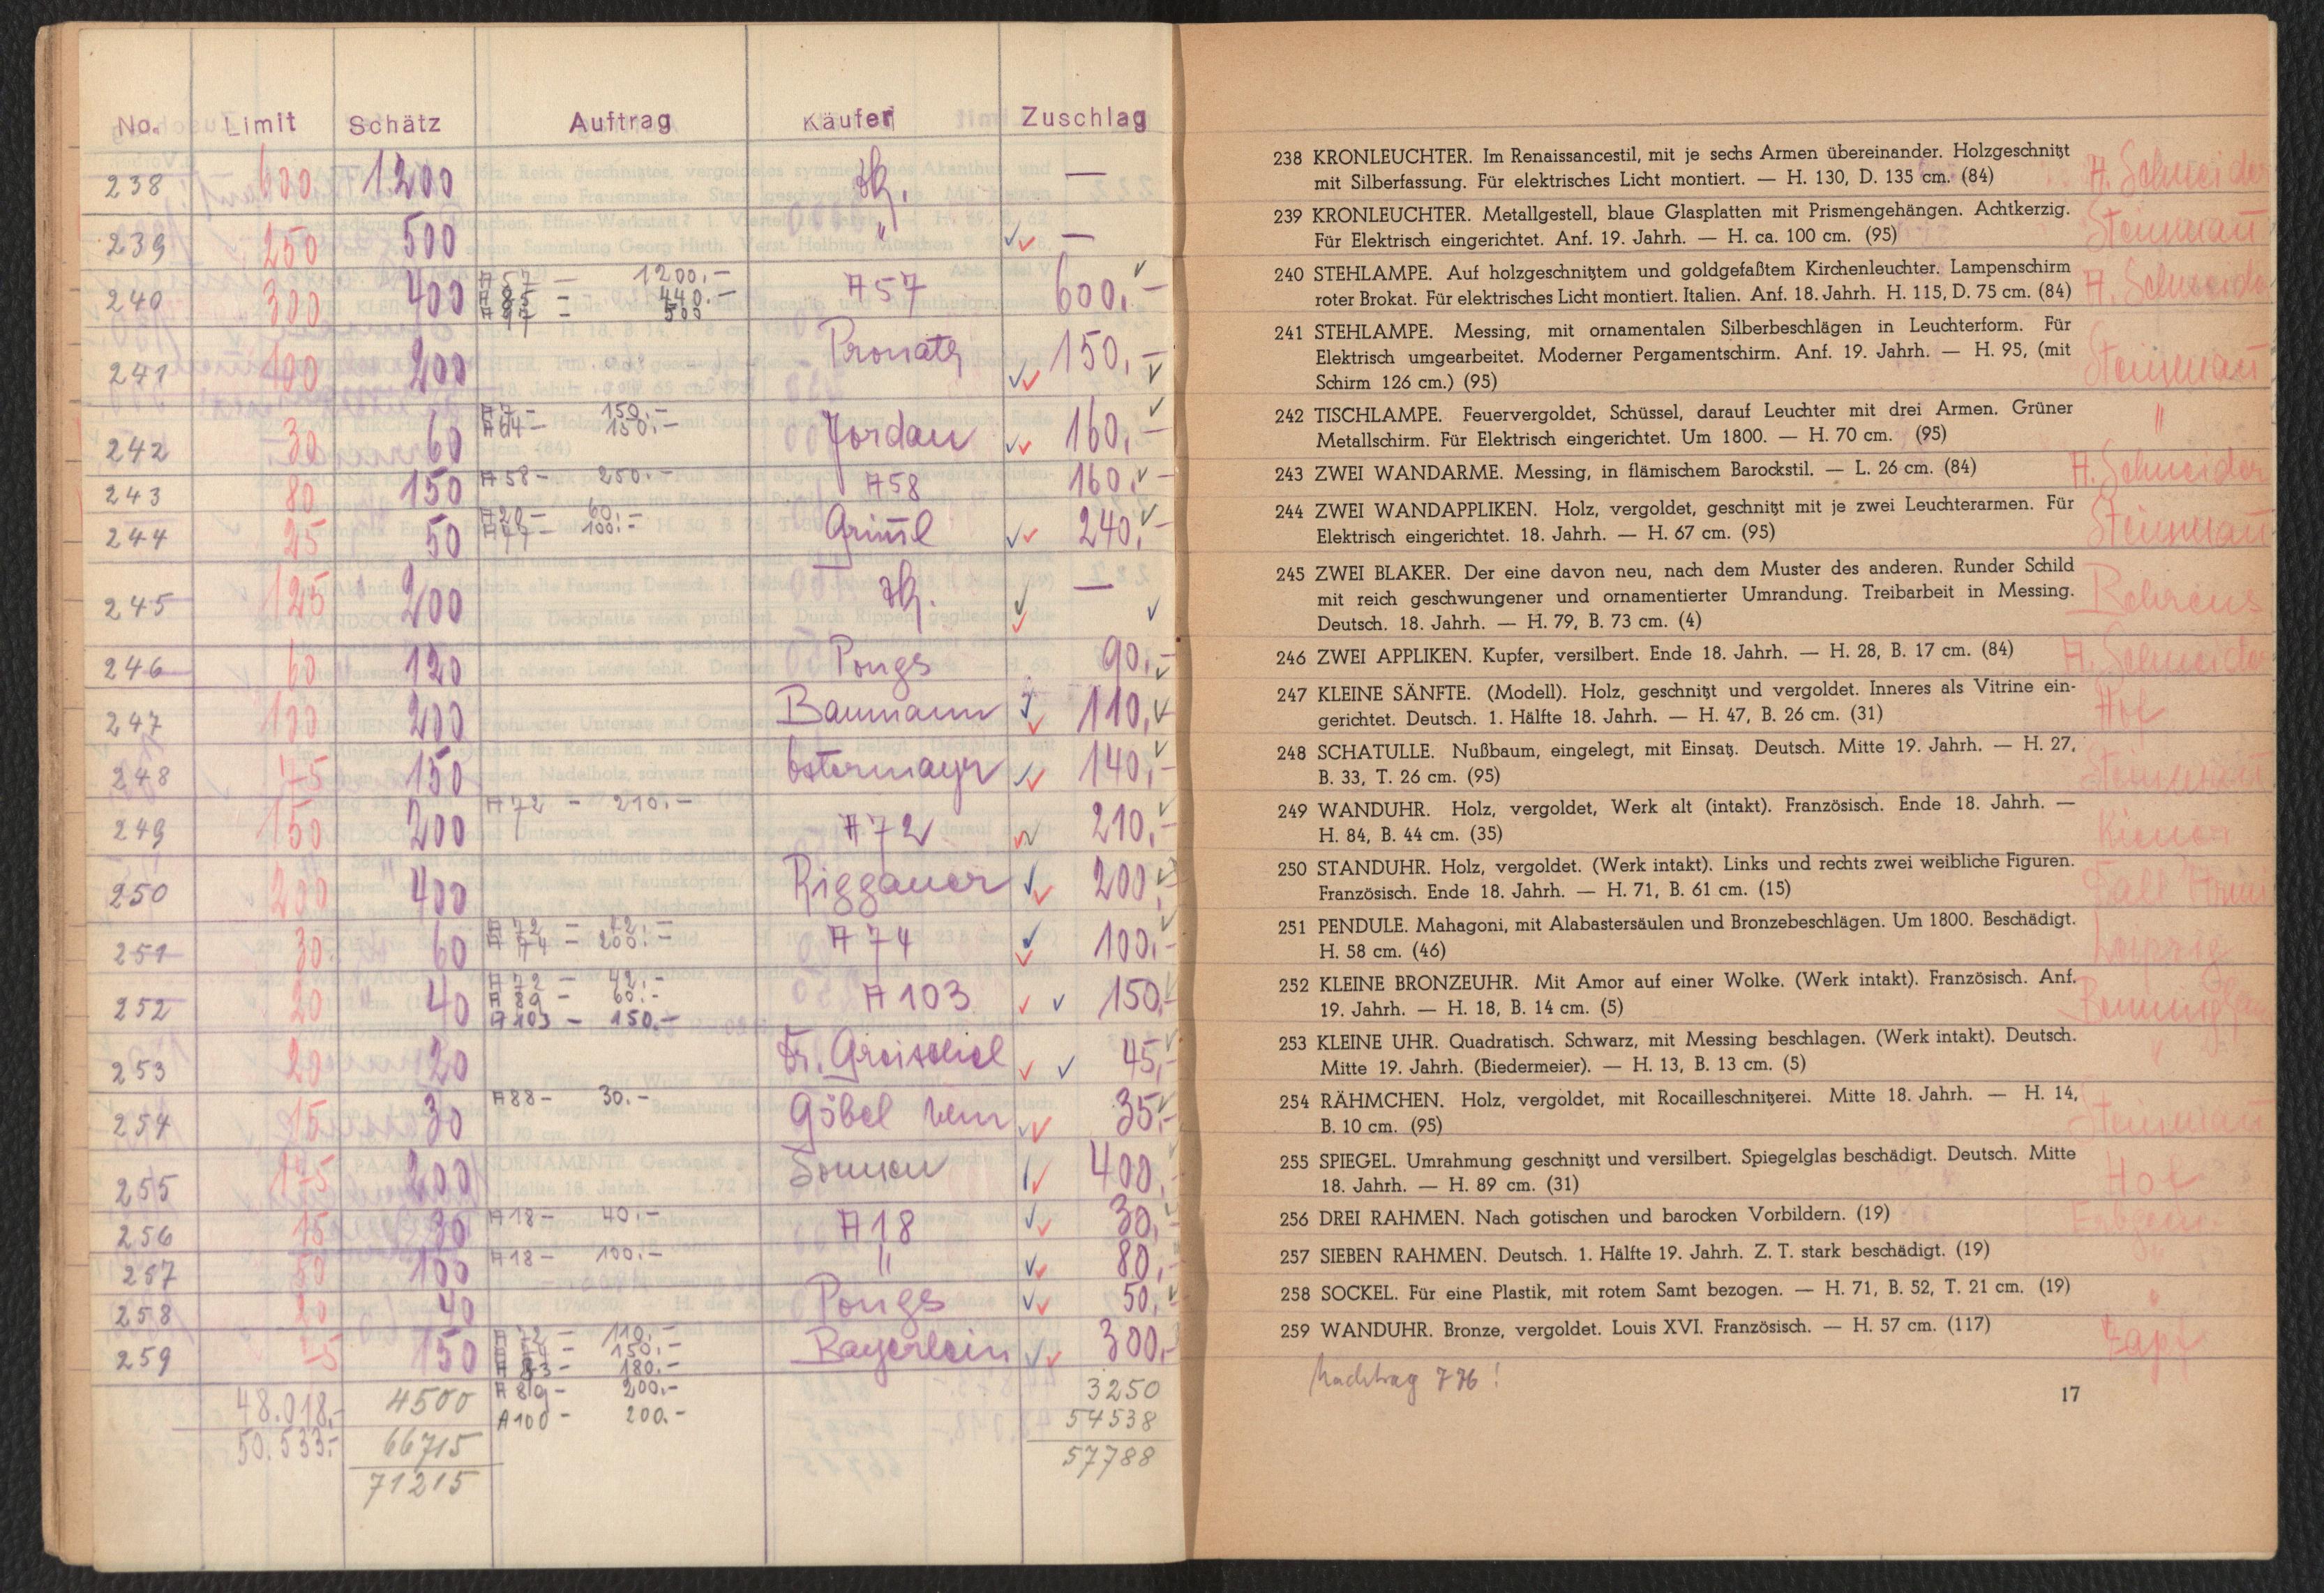 No. Limit Schätz Auftrag Käufer Zuschlag
238 600 1200 —
239 250 500 " —
240 300 400 A 57 — 1200.— A 57 600,—
A 85 — 440.—
500
241 100 200 150,—
242 30 60 A 7 — 150.— Jordan 160,—
A 64 — 150.—
243 80 150 A 58 — 250.— A 58 160,—
244 25 50 A 20 — 60.— 240,—
A 77 — 100.—
245 125 200 —
246 60 120 Pongs 90,—
247 100 200 Baumann 110,—
248 75 150 Ostermayr 140,—
249 150 200 A 72 — 210.— A 72 210,—
250 200 400 Riggauer 200,—
251 30 60 A 72 — 42.— A 74 100,—
A 74 — 200.—
252 20 40 A 72 — 42.— A 103 150,—
A 89 — 60.—
A 103 — 150.—
253 20 20 45,—
254 15 30 A 88 — 30.— Göbel 35,—
255 175 200 400,—
256 15 30 A 18 — 40.— A 18 30,—
257 50 100 A 18 — 100.— " 80,—
258 20 40 Pongs 50,—
259 75 150 A 72 — 110.— Bayerlein 300,—
150.—
A 83 — 180.—
A 89 — 200.—
A 100 — 200.—
48.018.— 4500 3250
50.533.— 66715 54538
71215 57788
238 KRONLEUCHTER. Im Renaissancestil, mit je sechs Armen übereinander. Holzgeschnitzt
mit Silberfassung. Für elektrisches Licht montiert. — H. 130, D. 135 cm. (84) A. Schneider
239 KRONLEUCHTER. Metallgestell, blaue Glasplatten mit Prismengehängen. Achtkerzig.
Für Elektrisch eingerichtet. Anf. 19. Jahrh. — H. ca. 100 cm. (95)
240 STEHLAMPE. Auf holzgeschnitztem und goldgefaßtem Kirchenleuchter. Lampenschirm
roter Brokat. Für elektrisches Licht montiert. Italien. Anf. 18. Jahrh. H. 115, D. 75 cm. (84) A. Schneider
241 STEHLAMPE. Messing, mit ornamentalen Silberbeschlägen in Leuchterform. Für
Elektrisch umgearbeitet. Moderner Pergamentschirm. Anf. 19. Jahrh. — H. 95, (mit
Schirm 126 cm.) (95)
242 TISCHLAMPE. Feuervergoldet, Schüssel, darauf Leuchter mit drei Armen. Grüner "
Metallschirm. Für Elektrisch eingerichtet. Um 1800. — H. 70 cm. (95)
243 ZWEI WANDARME. Messing, in flämischem Barockstil. — L. 26 cm. (84) A. Schneider
244 ZWEI WANDAPPLIKEN. Holz, vergoldet, geschnitzt mit je zwei Leuchterarmen. Für
Elektrisch eingerichtet. 18. Jahrh. — H. 67 cm. (95)
245 ZWEI BLAKER. Der eine davon neu, nach dem Muster des anderen. Runder Schild
mit reich geschwungener und ornamentierter Umrandung. Treibarbeit in Messing. Behrens
Deutsch. 18. Jahrh. — H. 79, B. 73 cm. (4)
246 ZWEI APPLIKEN. Kupfer, versilbert. Ende 18. Jahrh. — H. 28, B. 17 cm. (84) A. Schneider
247 KLEINE SÄNFTE. (Modell). Holz, geschnitzt und vergoldet. Inneres als Vitrine ein-
gerichtet. Deutsch. 1. Hälfte 18. Jahrh. — H. 47, B. 26 cm. (31) Hof
248 SCHATULLE. Nußbaum, eingelegt, mit Einsatz. Deutsch. Mitte 19. Jahrh. — H. 27,
B. 33, T. 26 cm. (95)
249 WANDUHR. Holz, vergoldet, Werk alt (intakt). Französisch. Ende 18. Jahrh. —
H. 84, B. 44 cm. (35)
250 STANDUHR. Holz, vergoldet. (Werk intakt). Links und rechts zwei weibliche Figuren.
Französisch. Ende 18. Jahrh. — H. 71, B. 61 cm. (15)
251 PENDULE. Mahagoni, mit Alabastersäulen und Bronzebeschlägen. Um 1800. Beschädigt.
H. 58 cm. (46) Leipzig
252 KLEINE BRONZEUHR. Mit Amor auf einer Wolke. (Werk intakt). Französisch. Anf.
19. Jahrh. — H. 18, B. 14 cm. (5)
253 KLEINE UHR. Quadratisch. Schwarz, mit Messing beschlagen. (Werk intakt). Deutsch.
Mitte 19. Jahrh. (Biedermeier). — H. 13, B. 13 cm. (5)
254 RÄHMCHEN. Holz, vergoldet, mit Rocailleschnitzerei. Mitte 18. Jahrh. — H. 14,
B. 10 cm. (95)
255 SPIEGEL. Umrahmung geschnitzt und versilbert. Spiegelglas beschädigt. Deutsch. Mitte
18. Jahrh. — H. 89 cm. (31) Hof
256 DREI RAHMEN. Nach gotischen und barocken Vorbildern. (19)
257 SIEBEN RAHMEN. Deutsch. 1. Hälfte 19. Jahrh. Z. T. stark beschädigt. (19)
258 SOCKEL. Für eine Plastik, mit rotem Samt bezogen. — H. 71, B. 52, T. 21 cm. (19)
259 WANDUHR. Bronze, vergoldet. Louis XVI. Französisch. — H. 57 cm. (117) Zapf
Nachtrag 776!
17